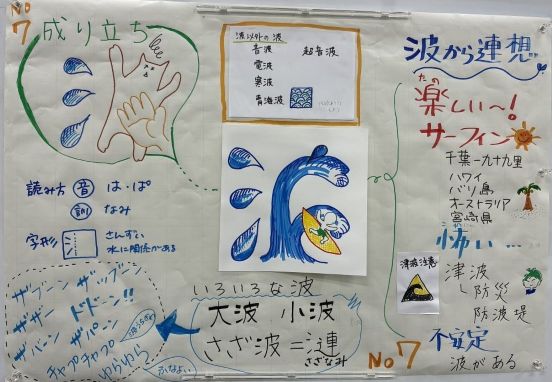 No 7
成り立ち
読み方 音 は・ぱ
訓 なみ
字形 さんずい
水に関係がある
ザブーン ザップーン
ザザー ドドーン!!
ザバーン ザパーン
チャプチャプ
ゆらゆら
ふなよい
波以外の波
音波 超音波
電波
寒波
青海波
いろいろな波
大波 小波
さざ波=漣
さざなみ
波から連想
たの
楽しい〜!
サーフィン
千葉ー九十九里
ハワイ
バリ島
オーストラリア
宮崎県
怖い…
津波注意
津波
防災
防波堤
不安定
波がある
No 7